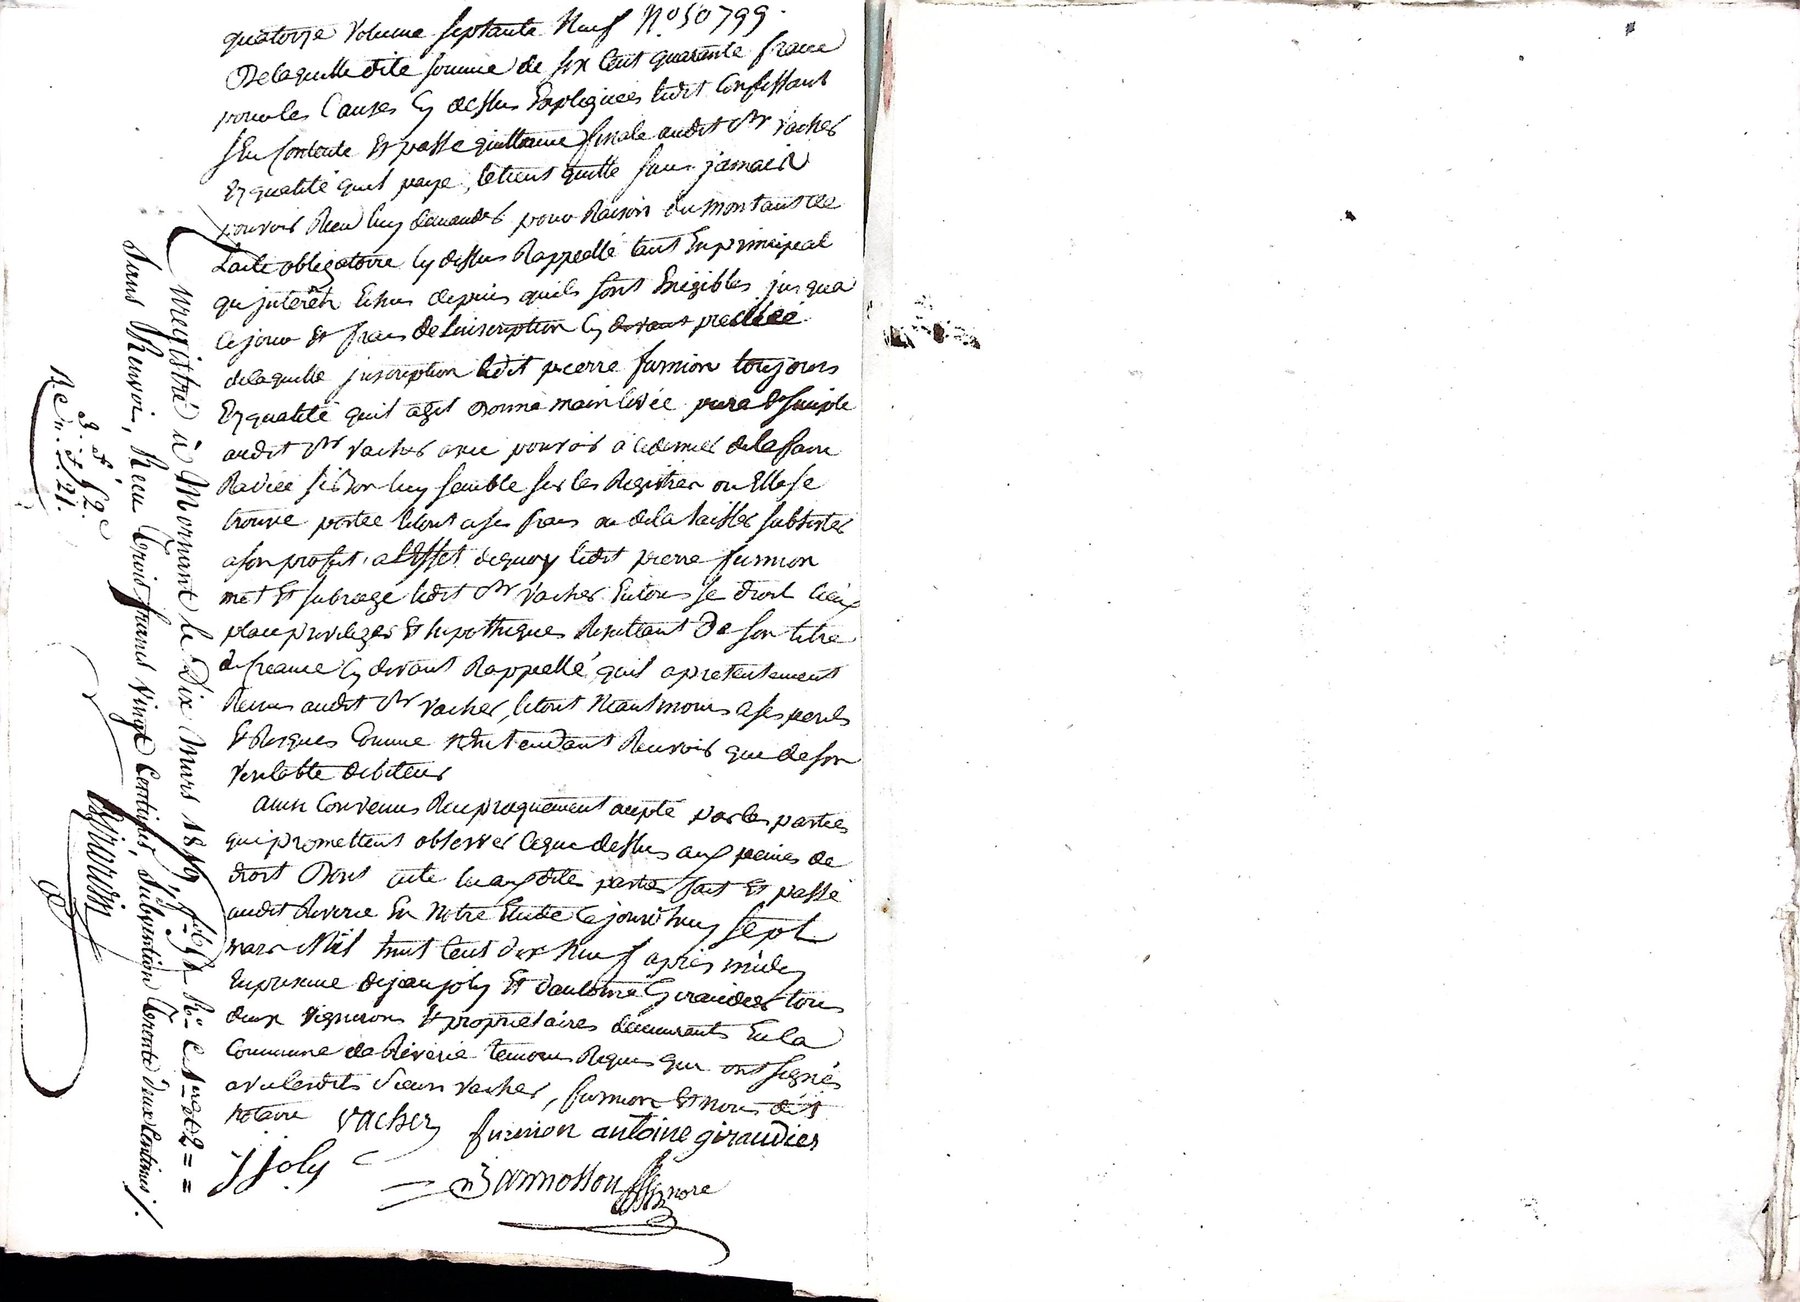 quatorze volume septante Neuf N.º 50799.
De laquelle dite somme de six Cent quarante francs
pour les Causes Cy dessus Expliquées ledit Confessant
sEn Contente Et passe quittance finale audit Sr vacher
En qualité quil paye, letient quitte sans jamais
pouvoir Rien luy demander pour Raison du montant de
Lacte obligatoire Cy dessus Rappellé tant En principal
qu jnterêts Echus depuis quils sont Exigibles jusqua
Ce jour Et frais de Linscription Cy devant precitée
delaquelle jnscription ledit pierre furnion toujours
En qualité quil agit Donne main levée pure Et simple
audit Sr vacher avec pouvoir à cedernier delafaire
Radiée si Bon luy semble sur les Registres ou Elle se
trouve portée letout a ses frais ou dela laisser subsister
a son profit, a LEffet dequoy ledit pierre furnion
met Et subroge ledit Sr vacher En tous se droit lieux
place privileges Et hypotheques Resultant De son titre
de Creance Cy devant Rappellé quil a presentement
Remis audit Sr vacher, letout Neantmoins a ses perils
Et Risques Comme Nentendant Recevoir que de son
veritable debiteur
ainsi Convenus Reciproquement acepté par les parties
qui promettent observer Ceque dessus aux peines de
droit Dont acte lu auxdites parties fait Et passé
audit Riverie En Notre Etude Cejourdhuy sept
mars Mil huit Cent dix Neuf après midy
En presence de jean joly Et dantoine Giraudier tous
deux vignerons Et proprietaires demeurants En la
Commune de Riverie temoins Requis qui ont signés
avec lesdits Sieurs vacher, furnion Et nous dit
Notaire vacher
furnion antoine giraudier
j joly
Enregistré à Mornant le Dix Mars 1819,
Sans Renvoi, Recu Trois francs vingt Centimes, Subvention Trente deux Centimes./.